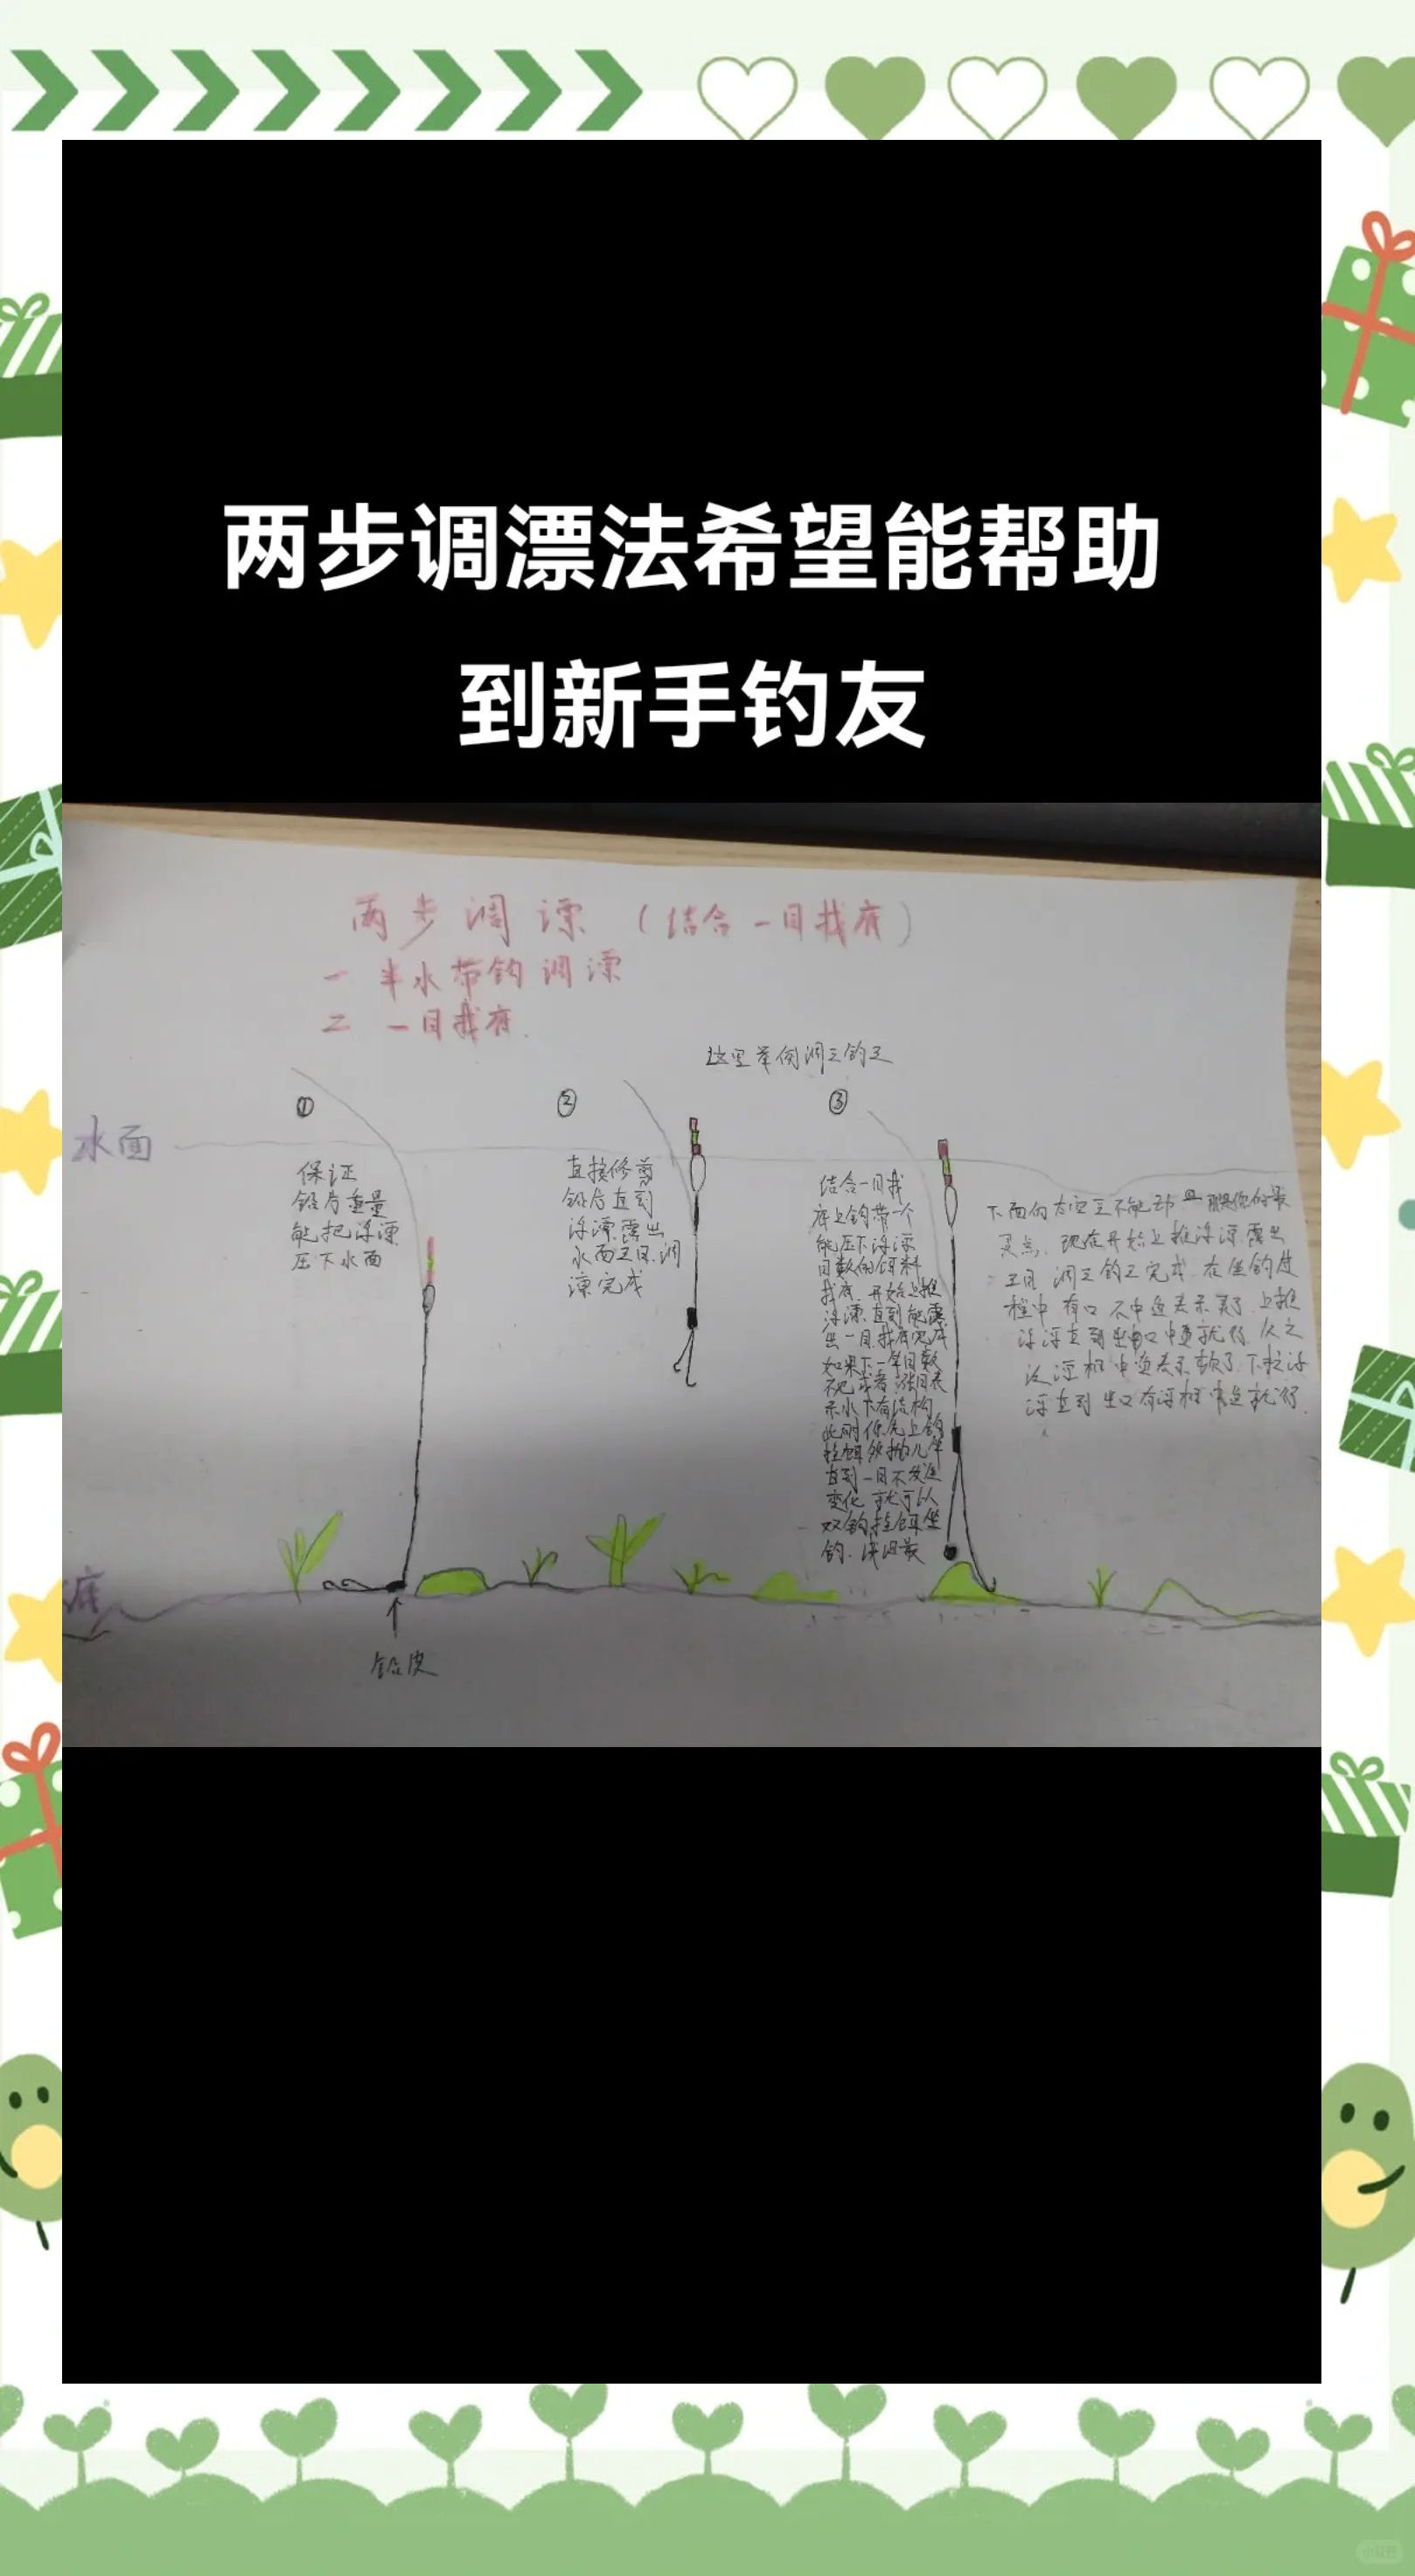 两步调漂法希望能帮助
到新手钓友
两步调漂（结合一目找底）
一 半水带钩调漂
二 一目找底
这里举例调三钓三
①
②
③
水面
保证
铅片重量
能把浮漂
压下水面
直接修剪
铅片直到
浮漂露出
水面 调
漂完成
结合一目找
底上钩带一个
能压下浮漂
目数的饵料
找底 开始上推
浮漂直到能露
出一目 找底完成
如果下一竿目数
不 或者 目表
示水下有结构
此时 上钩
挂饵 抛几竿
直到一目不发生
变化 就可以
双钩挂饵
钓
下面的 不能动
灵点 现在开始上推浮漂露出
完成 在 钓过
程中有口不中鱼表示 了 上推
浮漂直到 口中鱼就行
漂相 中鱼表示 了 下拉浮
漂直到 就行
底
铅皮